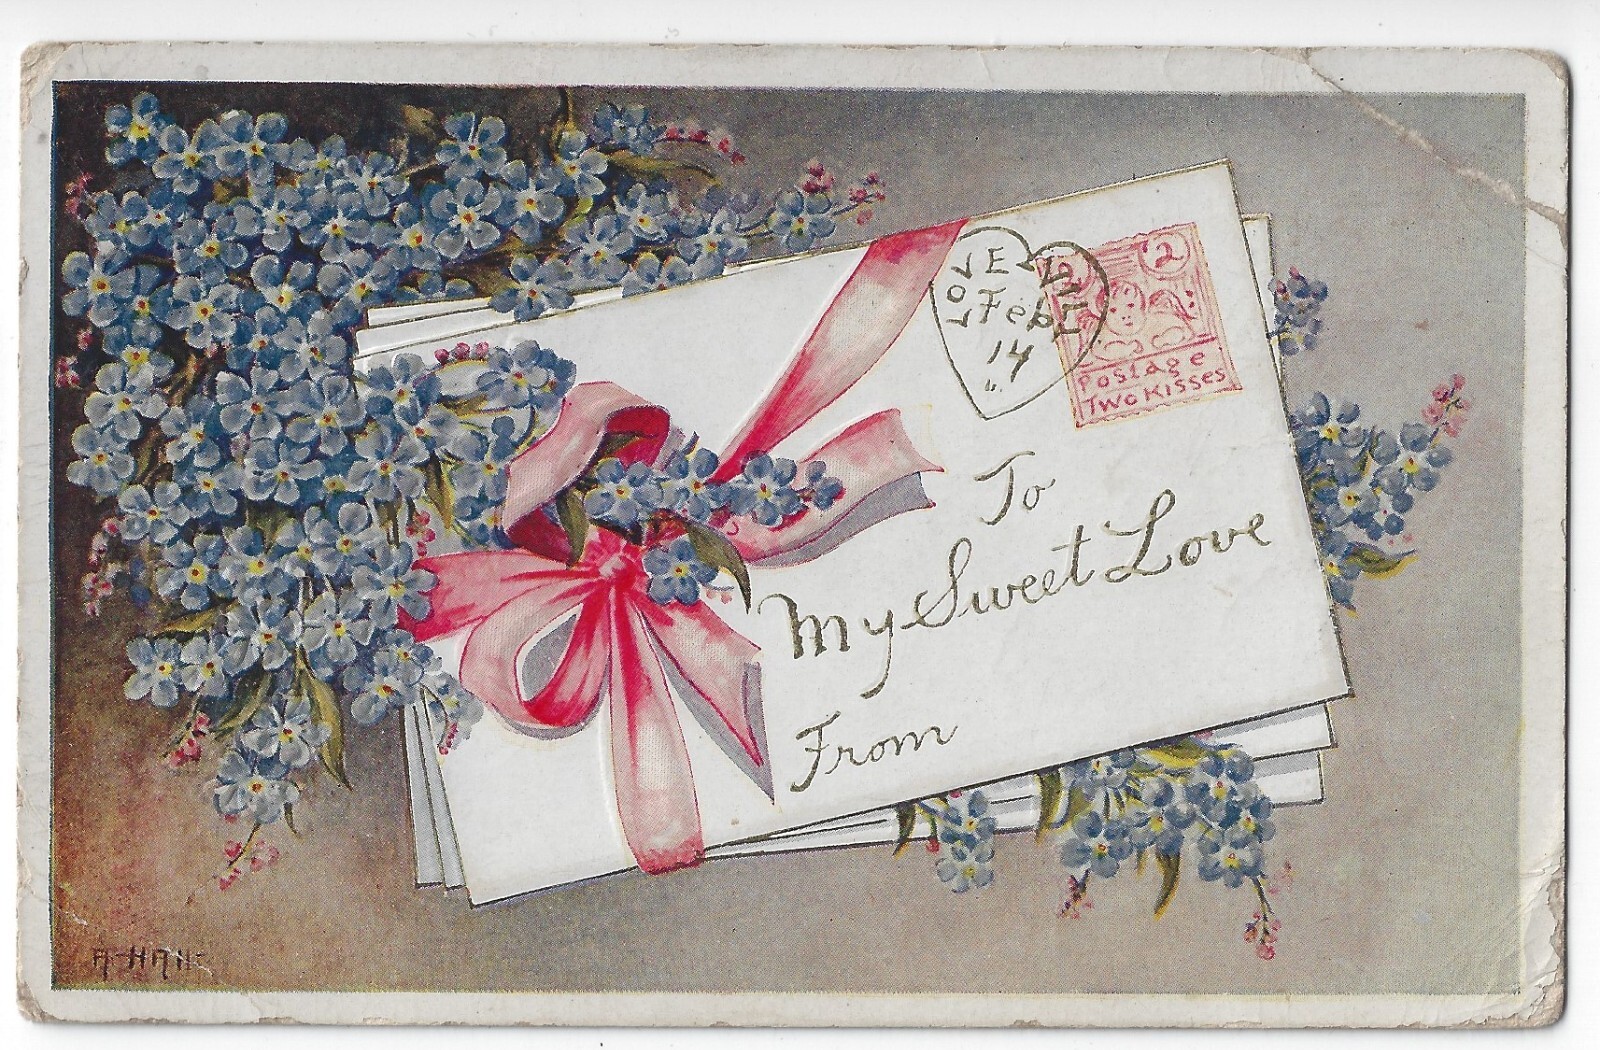 LOVEVILLE
Feb
14
2 2
Postage
Two Kisses
To
My Sweet Love
From